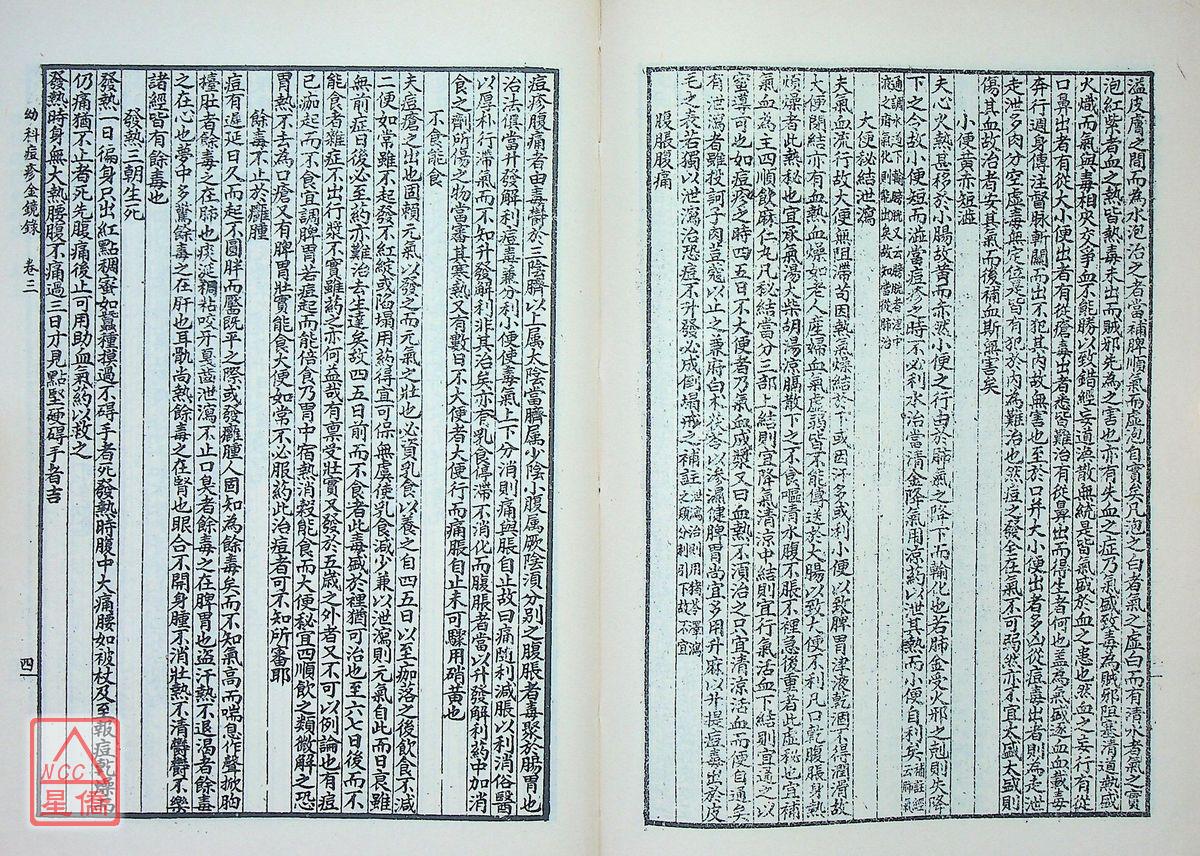 溢皮膚之間而為水泡治之者當補脾順氣而虛泡自實矣凡泡之白者氣之虛白而有清水者氣之實
泡紅紫者血之熱皆熱毒未出而賊邪先為之害也亦有失血之症乃氣盛致毒為賊邪阻塞清道熱盛
火熾而氣與毒相夾交爭血不能勝以致錯經妄道渙散無統是皆氣盛於血之患也然血之妄行有從
口鼻出者有從大小便出者有從瘡毒出者悉皆難治有從鼻出而得生者何也蓋為氣盛逐血血載毒
奔行週身傳注督脉斬關而出不犯其內故無害也至於口并大小便出者多凶從痘毒出者則為走泄
走泄多肉分空虛毒無定位是皆有犯於內為難治也然痘之發全在氣不可弱然亦不宜太盛太盛則
傷其血故治者安其氣而後補血斯無害矣
小便黃赤短澁
夫心火熱甚移於小腸故黃而赤然小便之行由於肺氣之降下而輸化也若肺金受火邪之剋則失降
下之令故小便短而澁當痘疹之時不必利水治當清金降氣用涼藥以泄其熱而小便自利矣補註經云肺氣
通調水道下輸膀胱又云膀胱者津液之府氣化則能出矣故知當從肺治
大便秘結泄瀉
夫氣血流行故大便無阻滯苟因熱氣燥結於下或因汗多或利小便以致脾胃津液乾涸不得潤滑故
大便閉結亦有血熱血燥如老人產婦血氣虛弱皆不能傳送於大腸以致大便不利凡口乾腹脹身熱
煩燥者此熱秘也宜承氣湯大柴胡湯涼膈散下之不食嘔清水腹不脹不裡急後重者此虛秘也宜補
氣血為主四順飲麻仁丸凡秘結當分三部上結則宜降氣清涼中結則宜行氣活血下結則宜通之以
蜜導可也如痘疹之時四五日不大便者乃氣血成漿又曰血熱不須治之只宜清涼活血而便自通矣
有泄瀉者雖投訶子肉荳蔻以止之兼府白朮茯苓以滲濕健脾胃尚宜多用升麻以升提痘毒出於皮
毛之表若獨以泄瀉治恐症不升發必成倒塌戒之補註泄瀉治則用猪苓澤瀉之類分利引下故不宜
腹脹腹痛
痘疹腹痛者由毒鬱於三陰臍以上屬太陰當臍屬少陰小腹屬厥陰須分別之腹脹者毒聚於腸胃也
治法俱當升發解利痘毒兼分利小便使毒氣上下分消則痛與脹自止故曰痛隨利減脹以利消俗醫
以厚朴行滯氣而不知升發解利非其治矣亦有乳食停滯不消化而腹脹者當以升發解利藥中加消
食之劑所傷之物當審其寒熱又有數日不大便者大便行而痛脹自止未可驟用硝黃也
不食能食
夫痘瘡之出也固賴元氣以發之而元氣之壯也必資乳食以養之自四五日以至痂落之後飲食不減
二便如常雖不起發不紅綻或陷塌用藥得宜可保無虞使乳食減少兼以泄瀉則元氣自此而日衰雖
無前症日後必至約亦難治去生遠矣故四五日前而不食者此毒盛於裡猶可治也至六七日後而不
能食者雜症不出行漿不實雖藥之亦何益哉有稟受壯實又發於五歲之外者又不可以例論也有痘
已痂起而不食宜調脾胃若痘起而能倍食乃胃中宿熱消殺能食而大便秘宜四順飲之類微解之恐
胃熱不去為口瘡又有脾胃壯實能食大便如常不必服藥此治痘者可不知所審耶
餘毒不止於癰腫
痘有遲延日久而起不圓胖而靨既平之際或發癰腫人固知為餘毒矣而不知氣高而喘息作聲掀胸
擡肚者餘毒之在肺也痰涎稠粘咬牙夏齒泄瀉不止口臭者餘毒之在脾胃也盜汗熱不退渴者餘毒
之在心也夢中多驚餘毒之在肝也耳骩尚熱餘毒之在腎也眼合不開身腫不消壯熱不清鬱鬱不樂
諸經皆有餘毒也
發熱三朝生死
發熱一日徧身只出紅點稠蜜如蠶種摸過不碍手者死發熱時腹中大痛腰如被杖及至報痘乾燥而
仍痛猶不止者死先腹痛後止可用助血氣約以救之
發熱時身無大熱腰腹不痛過三日才見點堅硬碍手者吉
幼科痘疹金鏡錄 卷三 四
NCC
星僑